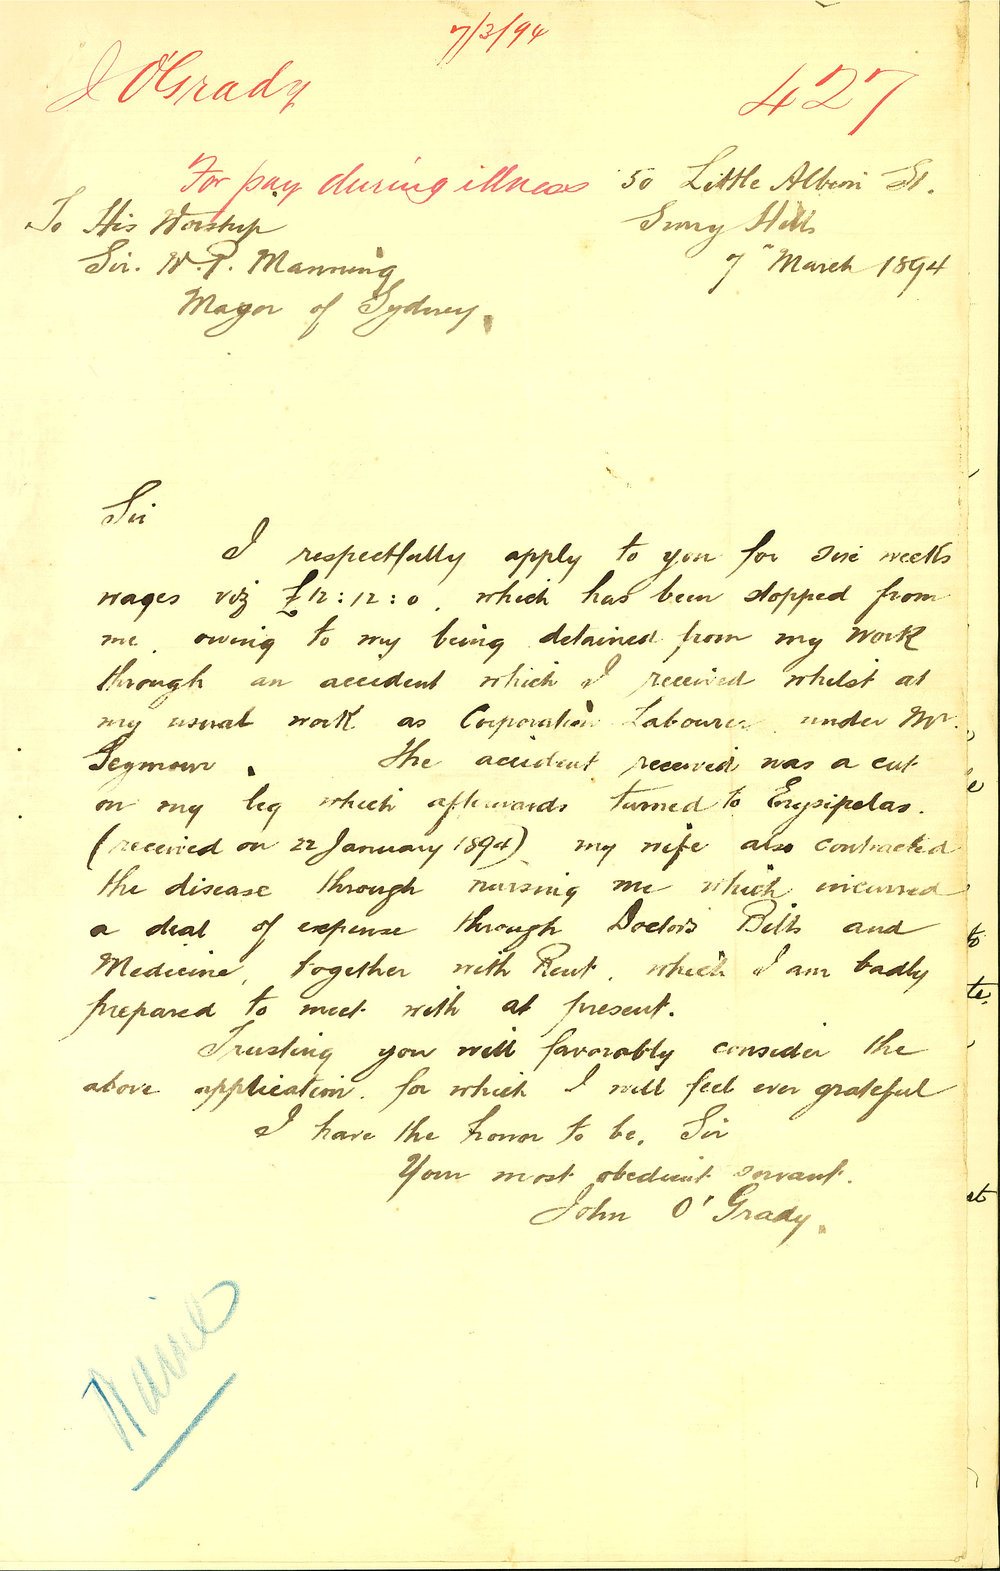 7/3/94
J O'Grady
427
For pay during illness
50 Little Albion St.
Surry Hills
7" March 1894
To His Worship
Sir. W. P. Manning
Mayor of Sydney.
Sir
I respectfully apply to you for six weeks
wages viz £12:12:0. which has been stopped from
me. owing to my being detained from my work
through an accident which I received whilst at
my usual work as Corporation Labourer under Mr.
Seymour. The accident received was a cut
on my leg which afterwards turned to Erysipelas.
(received on 22 January 1894) my wife also contracted
the disease through nursing me which incurred
a deal of expense through Doctors Bills and
Medicine, together with Rent. which I am badly
prepared to meet with at present.
Trusting you will favorably consider the
above application. for which I will feel ever grateful
I have the honor to be. Sir
Your most obedient servant.
John O'Grady.
to
te.